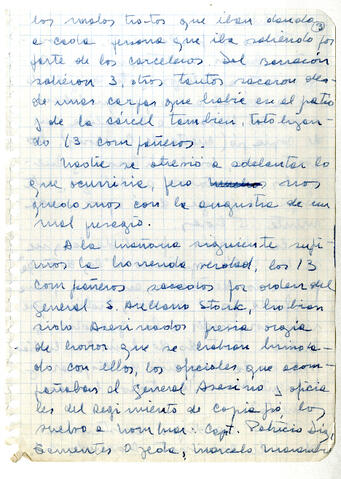 los malos tratos que iban dando
a cada persona que iba saliendo por
parte de los carceleros. Del barracón
salieron 3, otros tantos sacaron des-
de unas carpas que había en el patio
y de la cárcel tambien, totalizan-
do 13 compañeros.
Nadie se atrevió a adelantar lo
que ocurriria, pero muchos nos
quedamos con la angustia de un
mal presagio.
A la mañana siguiente supi-
mos la horrenda verdad, los 13
compañeros sacados por orden del
General S. Arellano Stark, habian
sido Asesinados previa orgia
de horror que se habian brinda-
do con ellos, los oficiales que acom-
pañaban al General Asesino y oficia-
les del regimiento de Copiapó, los
vuelvo a nombrar: Capt. Patricio Díaz
Tementes Ojeda, Marcelo Marambi